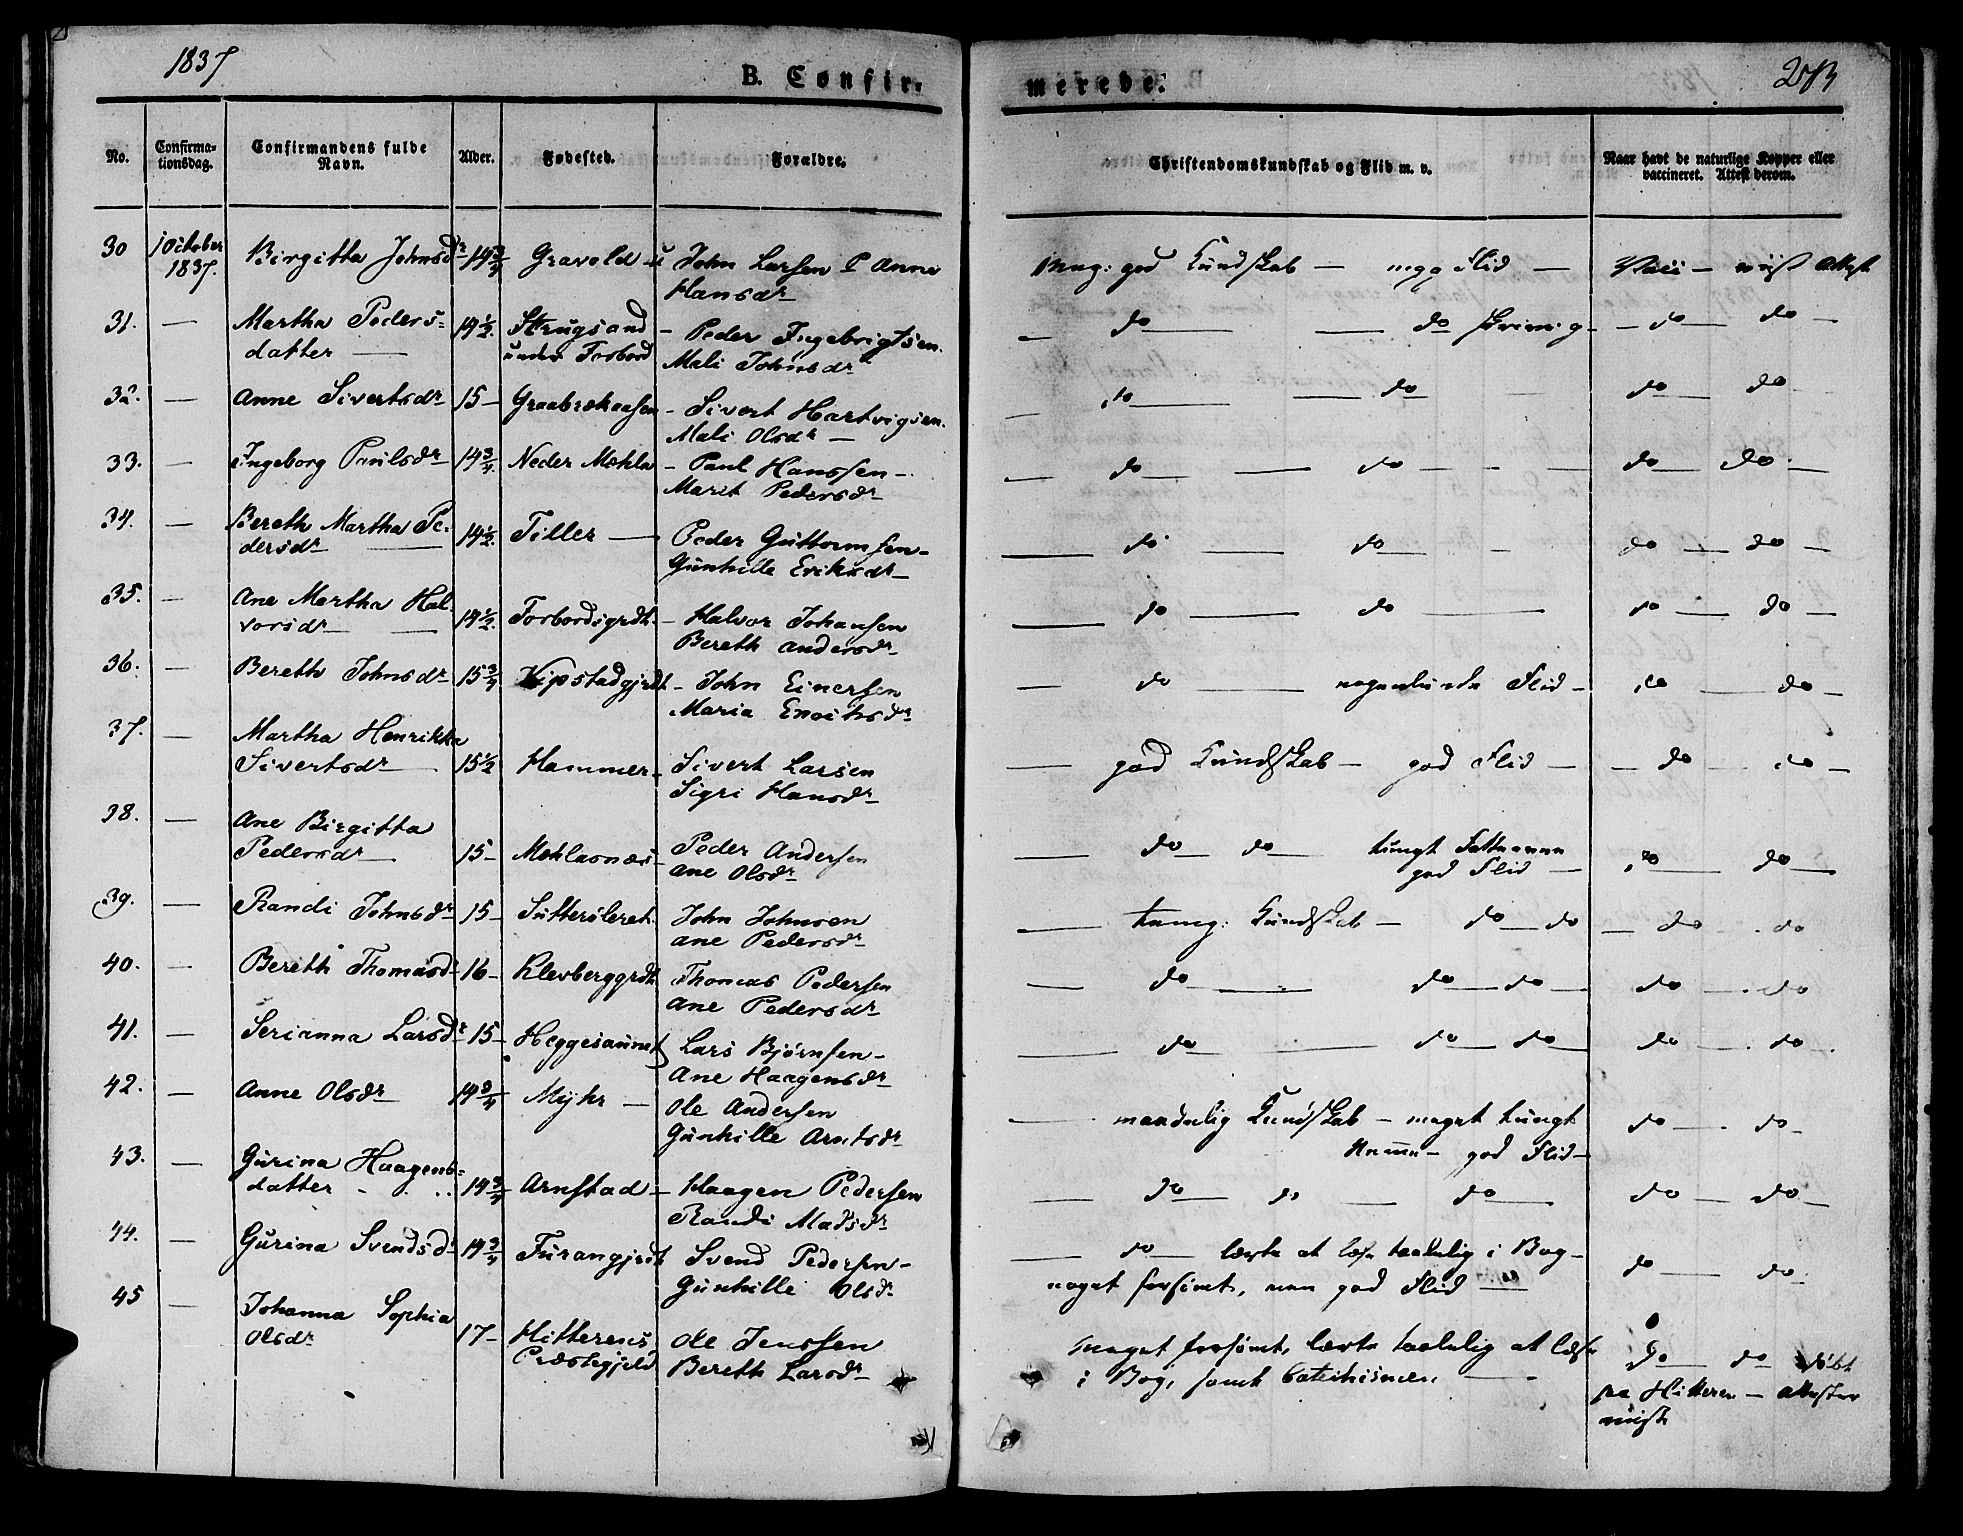 1837
B. Confir-
merede.
No.
Confirma-
tionsdag.
Confirmandens fulde
Navn.
Alder.
Fødested.
Forældre.
Christendomskundskab og Flid m. v.
Naar havt de naturlige Kopper eller
vaccineret. Attest derom.
30 1 October Birgitta Johnsdr 14 3/4 Gravold John Larsen & Anne god Kundskab — Flid — Vacc — Attest
1837. Hansdr
31. — Martha Peders= 14 1/2. Strugsand — Peder Ingebrigtsen. do — do — do — do —
datter — under Forbord Mali Johnsdr
32. — Anne Sivertsdr 15 — Graabrækaasen — Sivert Hartvigsen. do — do do do
Mali Olsdr —
33. — Ingeborg Paulsdr 14 3/4 Neder Mæhla — Paul Hanssen — do — do — do — do —
Marit Pedersdr
34. — Bereth Martha Pe- 14 1/2. Tiller — Peder Guttormsen — do — do — do — do —
dersdr — Gunhille Eriksdr —
35. — Ane Martha Hal- 14 1/2. Forbordsgrdt. — Halvor Johansen do — do — do — do —
vorsdr — Bereth Andersdr
36. — Bereth Johnsdr 15 3/4 Vipstadgjrdt — John Einersen do — nogenlunde Flid — do — do —
Maria Enochsdr
37. — Martha Henrikka
Sivertsdr — 15 1/2 Hammer — Sivert Larsen god Kundskab — god Flid — do do —
Sigri Hansdr
38. — Ane Birgitta
Pedersdr — 15 — Mæhlasnæs Peder Andersen do — do — tungt Fattevne do — do —
Ane Olsdr god Flid —
39. — Randi Johnsdr 15 — Sutterøleret. John Johnsen Kundskab — do — do — do do
Ane Pedersdr
40. — Bereth Thomasdr 16 — Klevberggrdt. Thomas Pedersen do — do — do — do — do
Ane Pedersdr
41. — Serianna Larsdr 15 — Heggesaunet Lars Bjørnsen — do — do — do — do — do.
Ane Haagensdr
42. — Anne Olsdr 14 3/4 Myhr — Ole Andersen maadelig Kundskab — meget tungt do — do —
Gunhille Arntsdr Nemme — god Flid —
43. — Gurina Haagens=
datter 14 3/4 Arnstad — Haagen Pedersen do — do — do — do — do —
Randi Madsdr
44. — Gurina Svendsdr 14 3/4 Furangjrdt Svend Pedersen — do — læste at læse taalelig i Bog — do — do.
Gunhille Olsdr noget forsømt, men god Flid —
45 — Johanna Sophia
Olsdr 17 — Hitterens Ole Jenssen meget forsømt, lærte taalelig at læse do — do døbt
Præstegjeld Bereth Larsdr — i Bog, samt Catechismen — paa Hitteren — attester